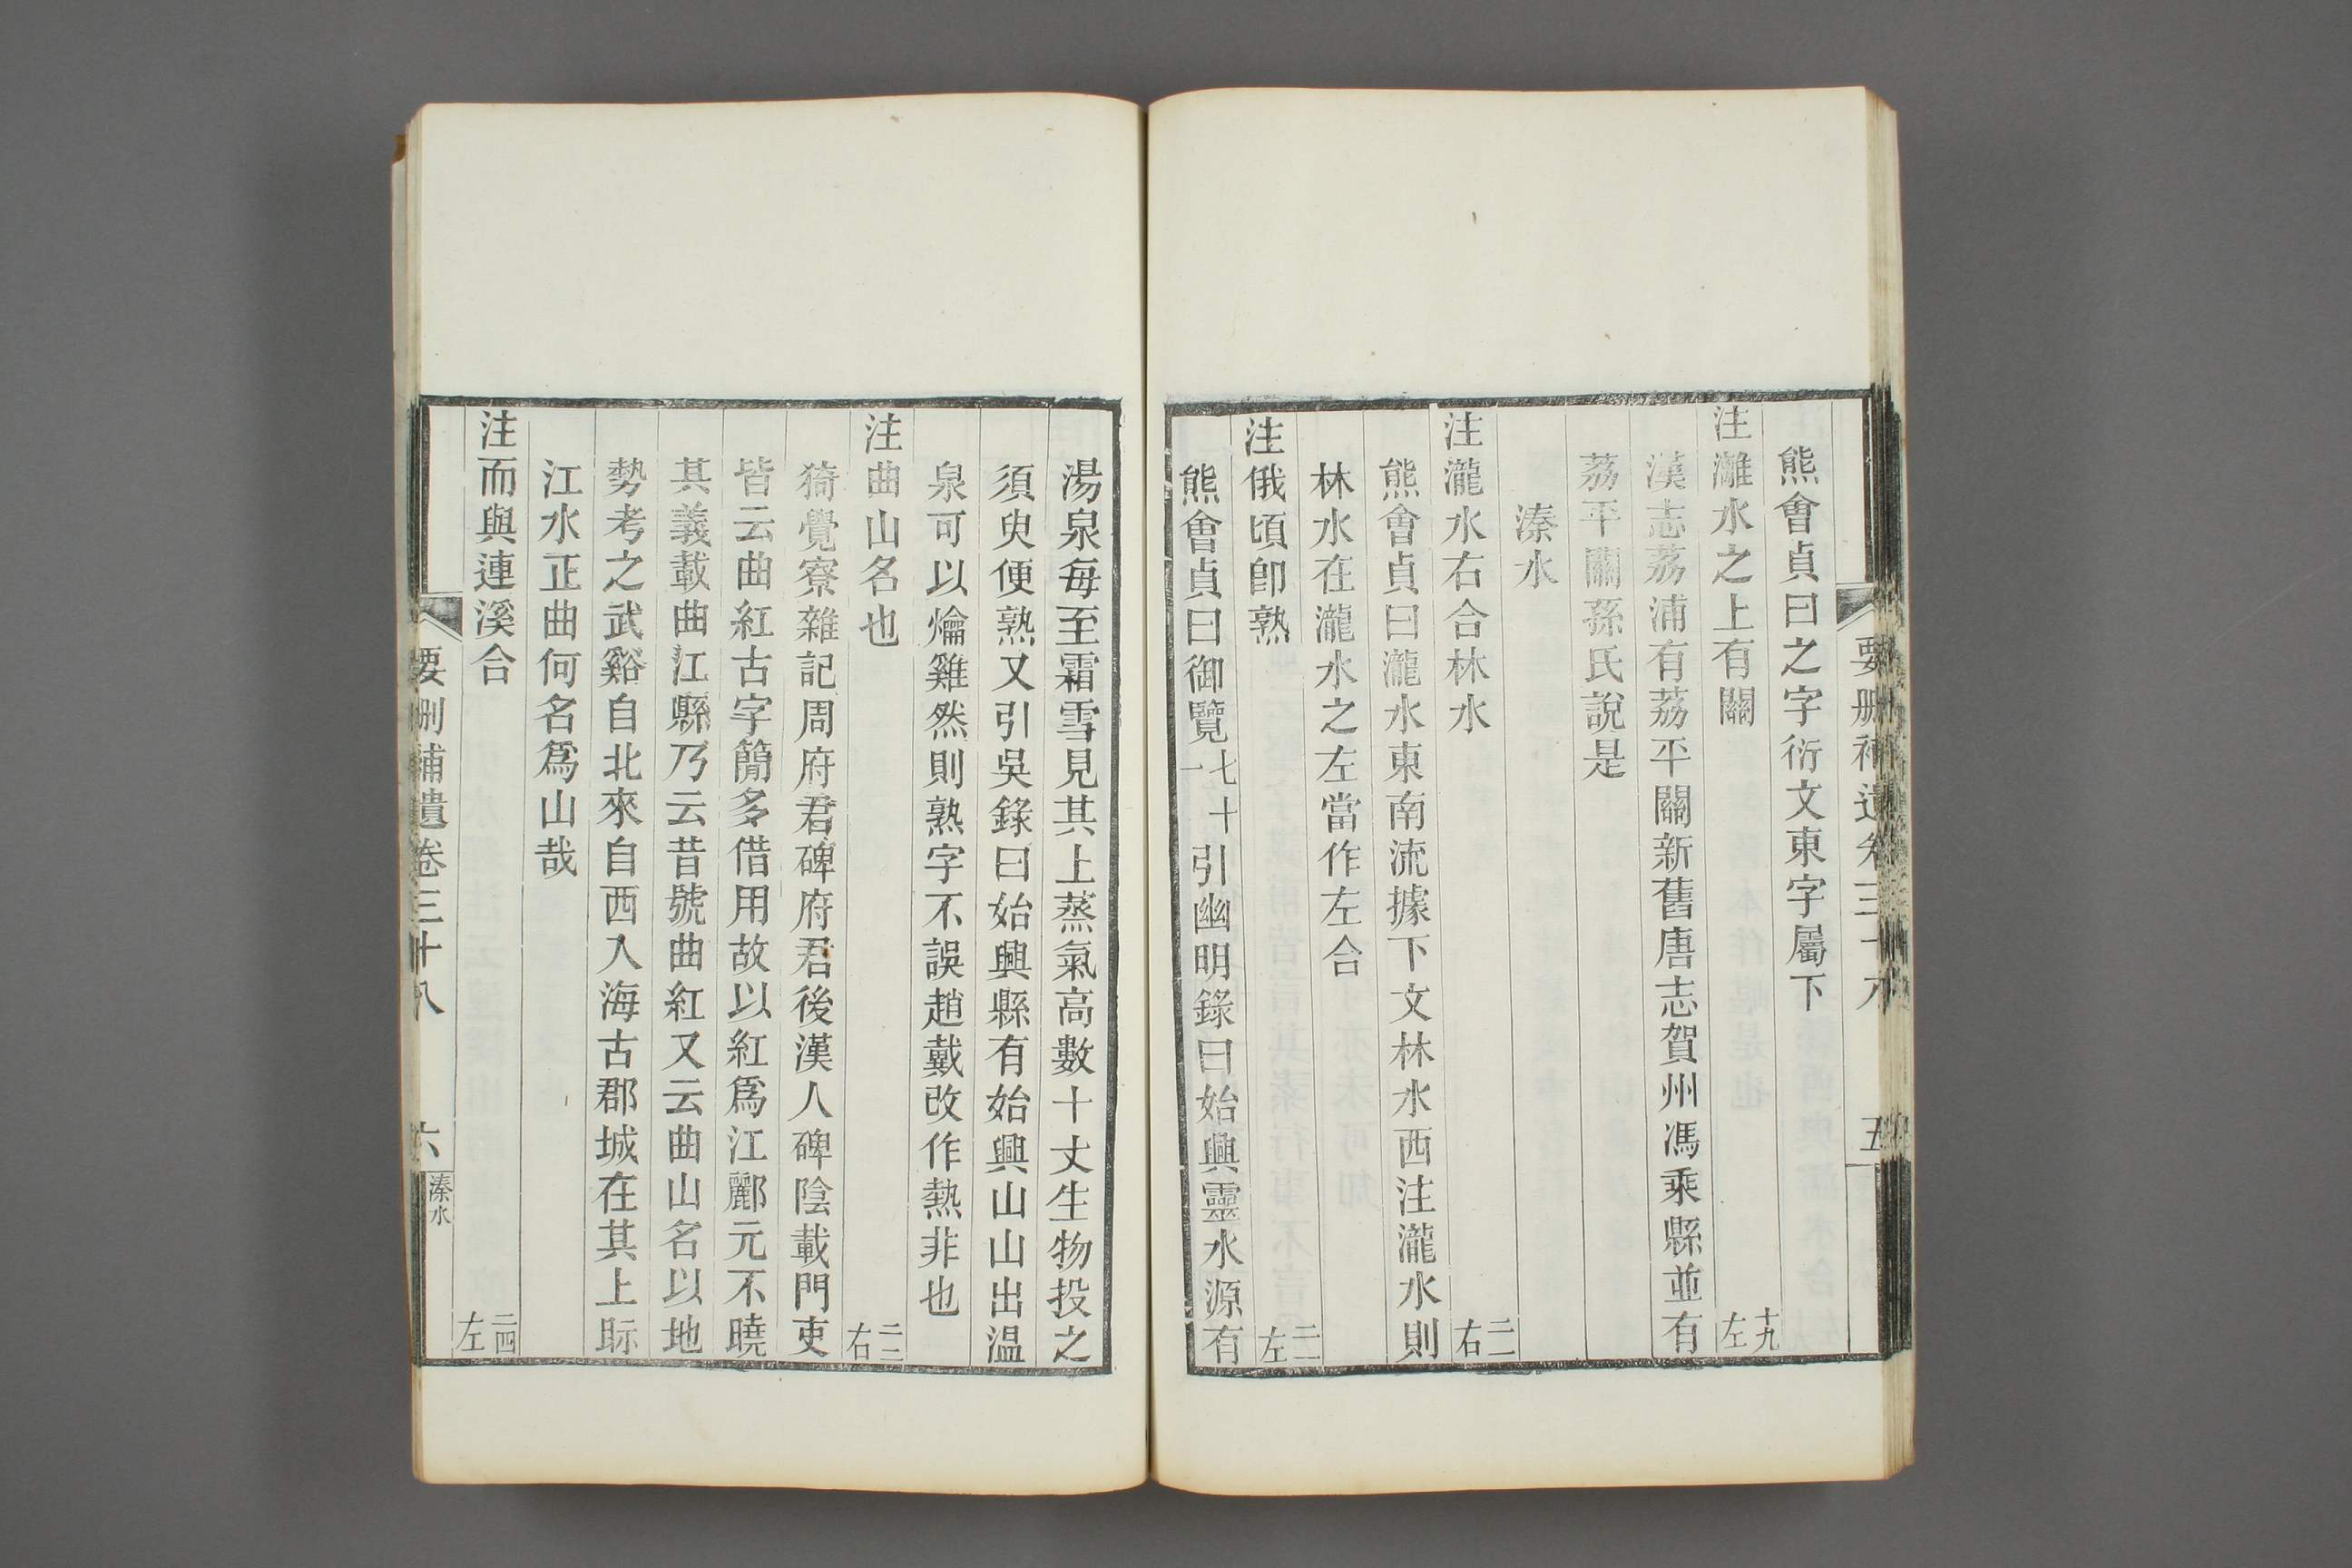 要刪補遺卷三十八 五
熊會貞曰之字衍文東字屬下
注灕水之上有關 十九左
漢志荔浦有荔平關新舊唐志賀州馮乘縣並有
荔平關孫氏說是
溱水
注瀧水右合林水 二一右
熊會貞曰瀧水東南流據下文林水西注瀧水則
林水在瀧水之左當作左合
注俄頃卽熟 二一左
熊會貞曰御覽七十一引幽明錄曰始興靈水源有
湯泉每至霜雪見其上蒸氣高數十丈生物投之
須臾便熟又引吳錄曰始興縣有始興山山出温
泉可以爚雞然則熟字不誤趙戴改作熱非也
注曲山名也 二二右
猗覺寮雜記周府君碑府君後漢人碑陰載門吏
皆云曲紅古字簡多借用故以紅爲江酈元不曉
其義載曲江縣乃云昔號曲紅又云曲山名以地
勢考之武谿自北來自西入海古郡城在其上眎
江水正曲何名爲山哉
注而與連溪合 二四左
要刪補遺卷三十八 六 溱水